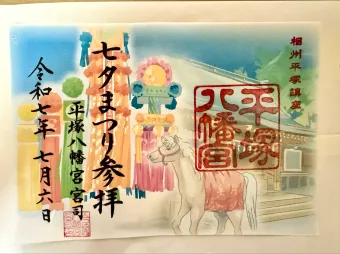 相州平塚鎮座
平塚
八幡宮
七夕まつり参拝
平塚八幡宮宮司
令和七年七月六日